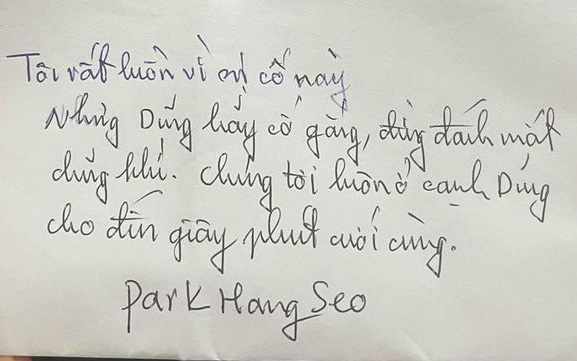 Tôi rất luồn vì sự cố này
Nhưng Dũng hãy cố gắng, đừng đánh mất
dũng khí. chúng tôi luôn ở cạnh Dũng
cho đến giây phút cuối cùng.
Park Hang Seo